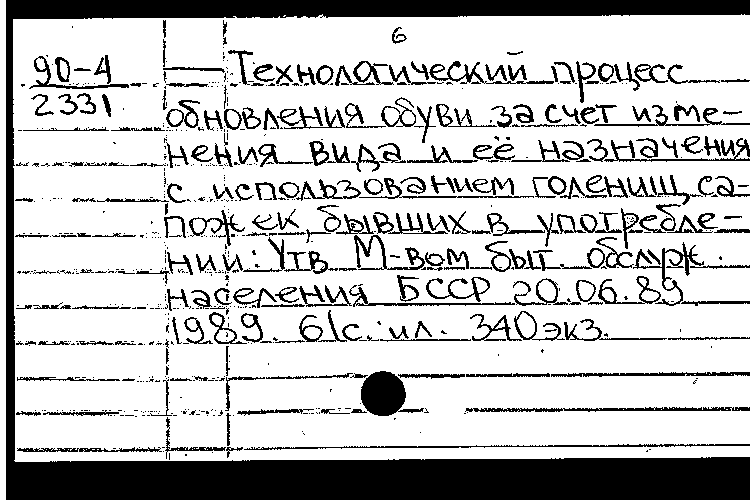 6
90-4
2331
— Технологический процесс
обновления обуви за счет изме-
нения вида и её назначения
с использованием голенищ са-
пожек, бывших в употребле-
нии: Утв М-вом быт. обслуж.
населения БССР 20.06.89
1989. 61с.: ил. 340 экз.